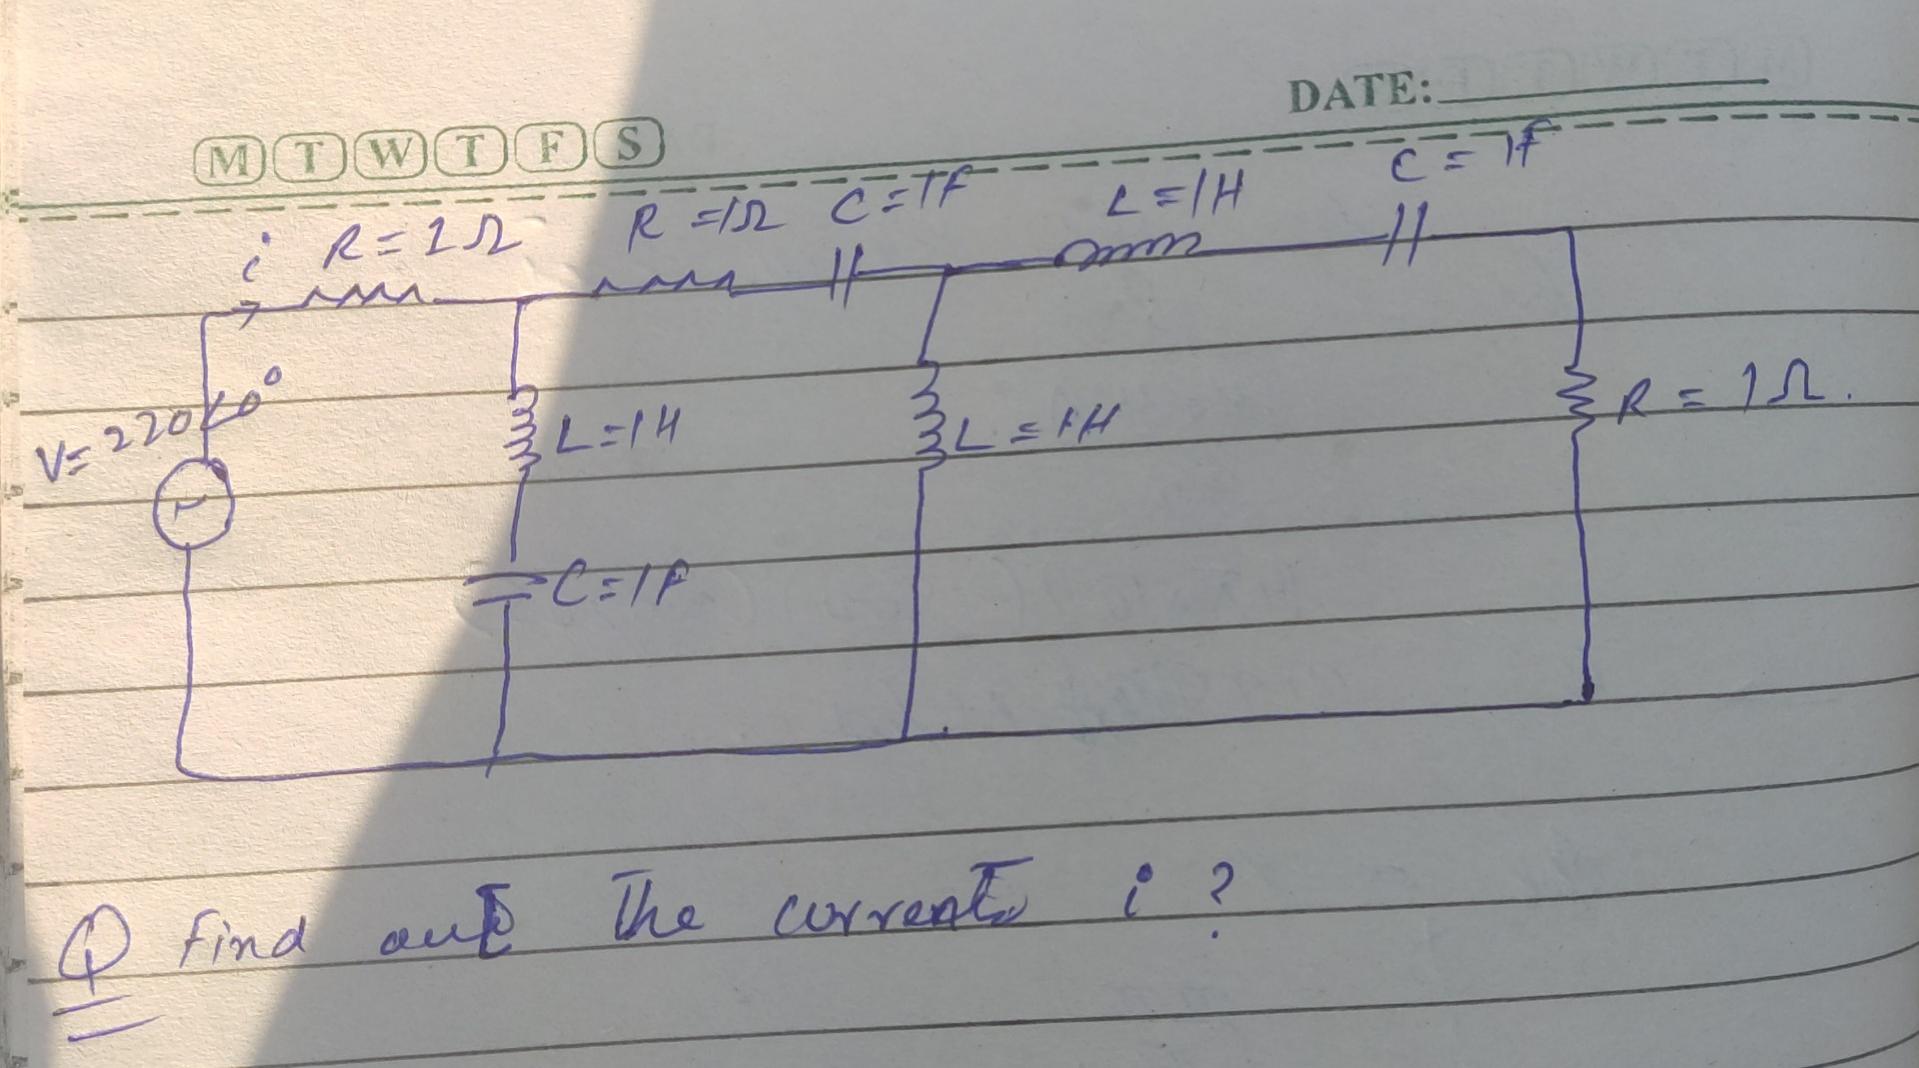 DATE:
M T W T F S
i R=1Ω R=1Ω C=1F L=1H C=1F
V=220∠0°
L=1H L=1H R=1Ω.
C=1F
Q find out The current i?